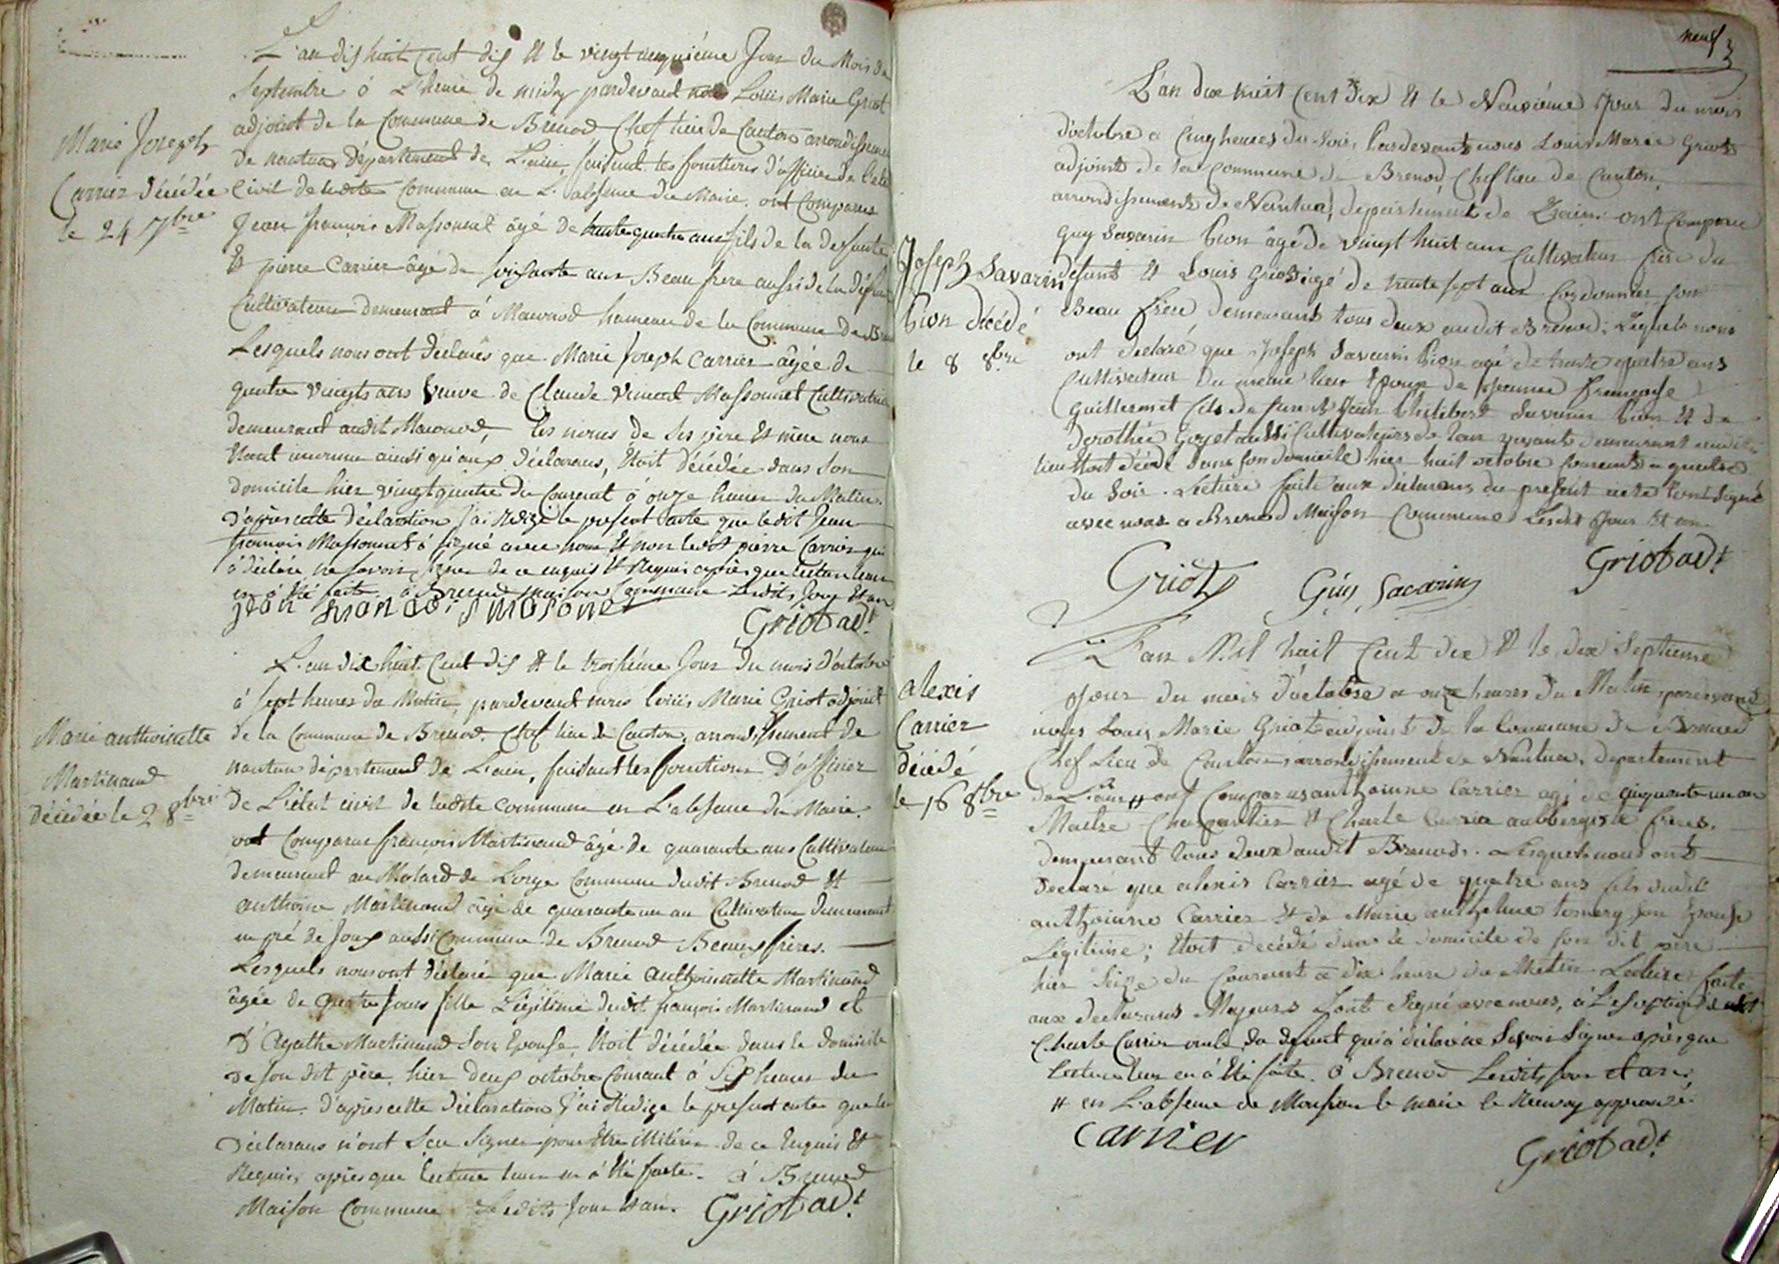 L'an dis huit Cent dis et le vingt cinquième Jour du Mois de
Septembre à L'heure de midy pardevant nous Louis Marie Griot
adjoint de la Commune de Brenod Chef lieu de Canton arrondissement
de nantua Département de L'ain, faisant les fonctions d'officier de l'état
Civil de ladite Commune en L'absence du Maire. ont Comparus
Jean françois Massonnet âgé de trente quatre ans fils de la defunte
Et pierre Carrier âgé de soixante ans Beau frere aussi de la défunte
Cultivateurs demeurant à Macornod hameau de la Commune de Brenod
Lesquels nous ont Déclarés que Marie Joseph Carrier âgée de
quatre vingts ans Veuve de Claude Vincent Massonnet Cultivatrice
demeurant audit Macornod, les noms de ses père Et mère nous
étant inconnu ainsi qu'aux déclarans, étoit Décédée dans son
domicile hier vingt quatre du Courant à onze heures du Matin.
D'après cette déclaration J'ai Rédigé le present acte que ledit Jean
françois Massonnet à signé avec nous Et non ledit pierre Carrier qui
à déclaré ne savoir signer de ce enquis Et Requis après que lecture leur
en à été faite. à Brenod maison Commune Lesdits Jour Et an
Griot adt.
Marie Joseph
Carrier Décédée
le 24 7bre
L'an dix huit Cent dis et le troisième Jour du mois d'octobre
à sept heures du Matin, pardevant nous louis Marie Griot adjoint
de la Commune de Brenod Chef lieu de Canton, arrondissement de
nantua département de L'ain, faisant les fonctions D'officier
De L'état civil de ladite commune en L'absence du Maire.
ont Comparus françois Martinand âgé de quarante ans Cultivateur
demeurant au Molard de Lorge Commune dudit Brenod Et
anthoine Martinand âgé de quarante un an Cultivateur demeurant
en pré de Joux aussi Commune de Brenod Beaux frères.
Lesquels nous ont Déclaré que Marie anthoinette Martinand
âgée de quatre Jours fille Légitime dudit françois Martinand et
D'Agathe Martinand son Epouse, étoit décédée dans le domicile
de son dit père, hier deux octobre Courant à Sept heures du
Matin. D'après cette Déclaration J'ai Rédigé le present acte que les
Déclarans n'ont Seu Signer pour être illitérés de ce Enquis Et
Requis, après que Lecture leur en à été faite. à Brenod
Maison Commune Lesdits Jour Et an. Griot adt.
Marie anthoinette
Martinand
décédée le 2 8bre
neuf
L'an dix huit Cent Dix Et le Neuvième Jour du mois
d'octobre a Cinq heures du Soir, Pardevant nous Louis Marie Griot
adjoint de la Commune de Brenod, Chef lieu de Canton,
arrondissement de Nantua, département de L'ain. ont Comparu
Guy Savarin Bion âgé de vingt huit ans Cultivateur frère du
defunt Et Louis Griot âgé de trente sept ans Cordonnier son
Beau frère demeurant tous deux audit Brenod. Lequels nous
ont declaré que Joseph Savarin Bion agé de trente quatre ans
Cultivateur du même lieu Epoux de Jeanne françoise
Guillermet fils de feu Jean Philibert Savarin Bion Et de
Dorothée Goyet aussi Cultivateurs de leur vivant demeurant audit
lieu étoit décédé Dans son domicile hier huit octobre Courant a quatre
du Soir. Lecture faite aux declarans du present acte l'ont Signé
avec nous a Brenod Maison Commune Lesdit Jour Et an.
Griot Guy Savarin Griot adt.
Joseph Savarin
Bion Décédé
le 8 8bre
L'an Mil huit Cent dix Et le dix Septième
Jour du mois d'octobre a onze heures du Matin, pardevant
nous Louis Marie Griot adjoint de la Commune de Brenod
Chef Lieu de Canton, arrondissement de Nantua, departement
de L'ain # ont Comparus anthoinne Carrier agé de Cinquante un an
Maitre Charpantier Et Charle Carrier aubbergiste frères.
demeurant tous deux audit Brenod. Lesquels nous ont
Declaré que alexis Carrier agé de quatre ans fils dudit
anthoinne Carrier Et de Marie anthelme tomery son Epouse
Légitime; étoit decédé dans le domicile de son dit père
hier Seize du Courant à dix heure du Matin Lecture faite
aux declarans Majeurs l'ont Signé avec nous, à L'exception dudit
Charle Carrier oncle du defunt qui à déclaré ne Savoir Signer après que
lecture leur en à été faite. à Brenod Lesdits Jour et an.
# en L'absence de Monsieur le maire le Renvoy approuvé.
Carrier Griot adt.
alexis
Carrier
décédé
le 16 8bre